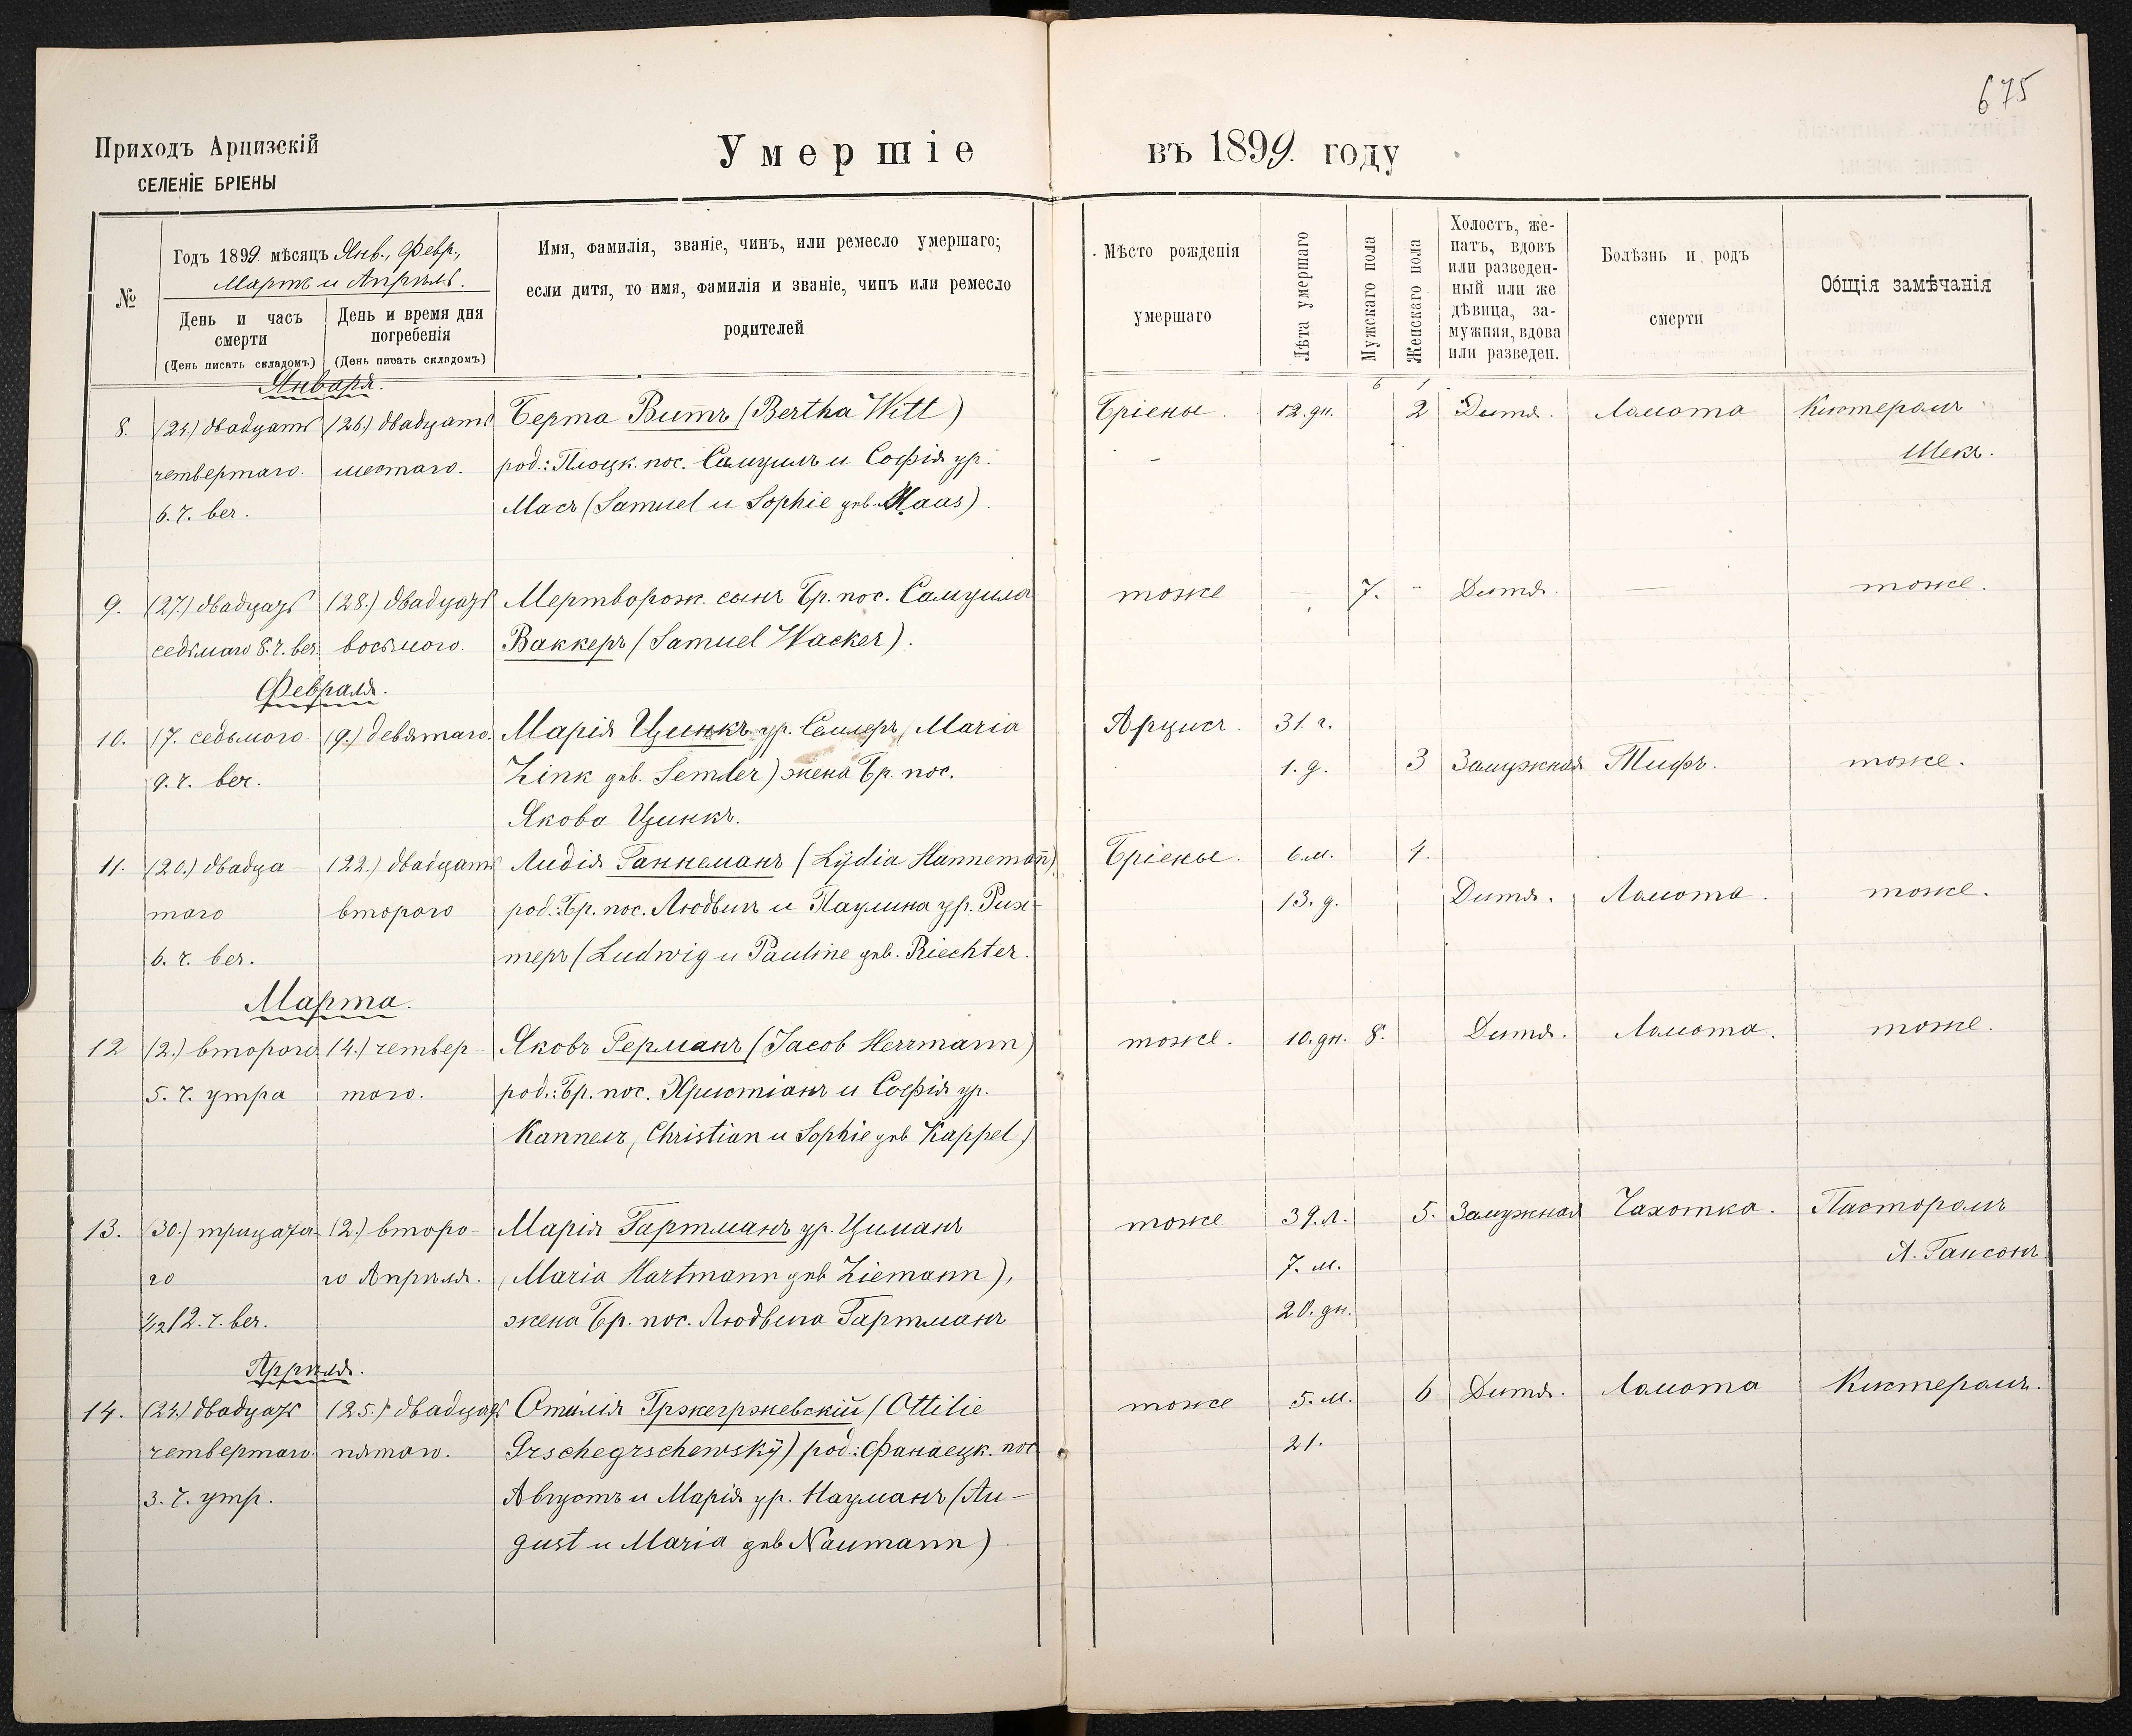 675
Приходъ Арцизскій
СЕЛЕНІЕ БРІЕНЫ
Умершіе въ 1899. году
№
Годъ 1899. мѣсяцъ Янв., Февр.,
Мартъ и Апрѣль.
День и часъ смерти
(День писать складомъ)
День и время дня погребенія
(День писать складомъ)
Имя, фамилія, званіе, чинъ, или ремесло умершаго;
если дитя, то имя, фамилія и званіе, чинъ или ремесло
родителей
Мѣсто рожденія
умершаго
Лѣта умершаго
Мужскаго пола
Женскаго пола
Холостъ, же-
натъ, вдовъ
или разведен-
ный или же
дѣвица, за-
мужняя, вдова
или разведен.
Болѣзнь и родъ
смерти
Общія замѣчанія
Января.
6 1
8. (24.) двадцать (26.) двадцать Берта Витъ (Bertha Witt) Бріены. 12. дн. 2 Дитя. Ламота Кистеромъ
четвертаго. шестаго. род.: Плоцк. пос. Самуилъ и Софія ур. - Шекъ.
6. ч. веч. Масъ (Samuel и Sophie дѣв. Maas).
9. (27.) двадцать (28.) двадцать Мертворож. сынъ Бр. пос. Самуила тоже - 7. - Дитя. — тоже.
седьмаго 8. ч. веч. восьмого. Ваккеръ (Samuel Wacker).
Февраля.
10. (7. седьмого (9.) девятаго. Марія Цинкъ ур. Семлеръ (Maria Арцисъ. 31. г.
9. ч. веч. Zink дѣв. Semler) жена Бр. пос. 1. д. 3 Замужная Тифъ. тоже.
Якова Цинкъ.
11. (20.) двадца- (22.) двадцать Лидія Ганнеманъ (Lÿdia Hannemañ) Бріены. 6. м. 4.
таго второго род.: Бр. пос. Людвигъ и Паулина ур. Рих- 13. д. Дитя. Ламота. тоже.
6. ч. веч. теръ (Ludwig и Pauline дѣв. Riechter.
Марта.
12 (2.) второго (4.) четвер- Яковъ Германъ (Jacob Herrmann) тоже. 10. дн. 8. Дитя. Ламота. тоже.
5. ч. утра таго. род.: Бр. пос. Христіанъ и Софія ур.
Каппелъ, Christian и Sophie дѣв Kappel)
13. (30.) тридцата- (2.) второ- Марія Гартманъ ур. Циманъ тоже 39. л. 5. Замужная Чахотка. Пасторомъ
го го Апрѣля. (Maria Hartmann дѣв Ziemann), 7. м. А. Гансонъ.
½12. ч. веч. жена Бр. пос. Людвига Гартманъ 20. дн.
Апрѣля.
14. (24.) двадцать (25.) двадцать Отилія Гржегржевскій (Ottilie тоже 5. м. 6 Дитя. Ламота Кистеромъ.
четвертаго. пятого. Grschegrschewskÿ) род.: Фанаецк. пос 21.
3. ч. утр. Августъ и Марія ур. Науманъ (Au-
gust и Maria дѣв Naumann)